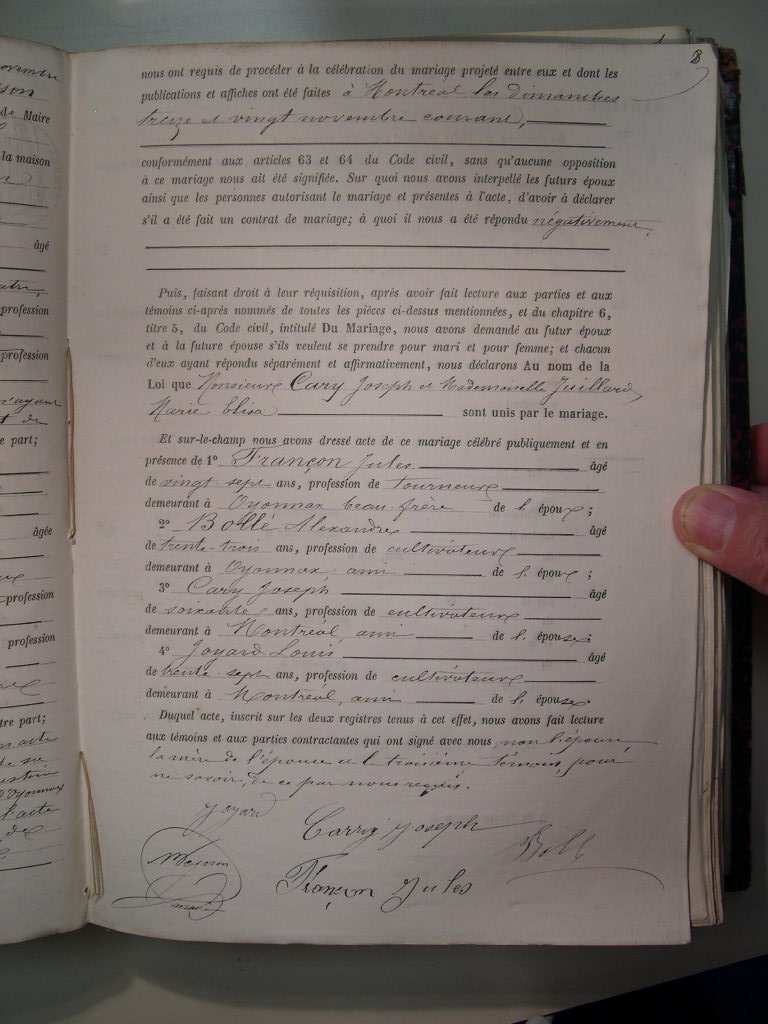 8
novembre
de Maire
la maison
âgé
profession
profession
e part;
âgée
profession
profession
tre part;
nous ont requis de procéder à la célébration du mariage projeté entre eux et dont les
publications et affiches ont été faites à Montréal les dimanches
treize et vingt novembre courant,
conformément aux articles 63 et 64 du Code civil, sans qu'aucune opposition
à ce mariage nous ait été signifiée. Sur quoi nous avons interpellé les futurs époux
ainsi que les personnes autorisant le mariage et présentes à l'acte, d'avoir à déclarer
s'il a été fait un contrat de mariage; à quoi il nous a été répondu négativement.
Puis, faisant droit à leur réquisition, après avoir fait lecture aux parties et aux
témoins ci-après nommés de toutes les pièces ci-dessus mentionnées, et du chapitre 6,
titre 5, du Code civil, intitulé Du Mariage, nous avons demandé au futur époux
et à la future épouse s'ils veulent se prendre pour mari et pour femme; et chacun
d'eux ayant répondu séparément et affirmativement, nous déclarons Au nom de la
Loi que Monsieur Cary Joseph et Mademoiselle Juillard,
Marie Elisa sont unis par le mariage.
Et sur-le-champ nous avons dressé acte de ce mariage célébré publiquement et en
présence de 1° Françon Jules âgé
de vingt sept ans, profession de tourneur
demeurant à Oyonnax beau-frère de l. époux;
2° Bollé Alexandre âgé
de trente-trois ans, profession de cultivateur
demeurant à Oyonnax, ami de l. époux;
3° Cary Joseph âgé
de soixante ans, profession de cultivateur
demeurant à Montréal, ami de l. épouse;
4° Joyard Louis âgé
de trente sept ans, profession de cultivateur
demeurant à Montréal, ami de l. épouse.
Duquel acte, inscrit sur les deux registres tenus à cet effet, nous avons fait lecture
aux témoins et aux parties contractantes qui ont signé avec nous non l'épouse,
la mère de l'épouse et le troisième témoin, pour
ne savoir, de ce par nous requis.
Joyard
Carry Joseph
Bollé
Françon Jules